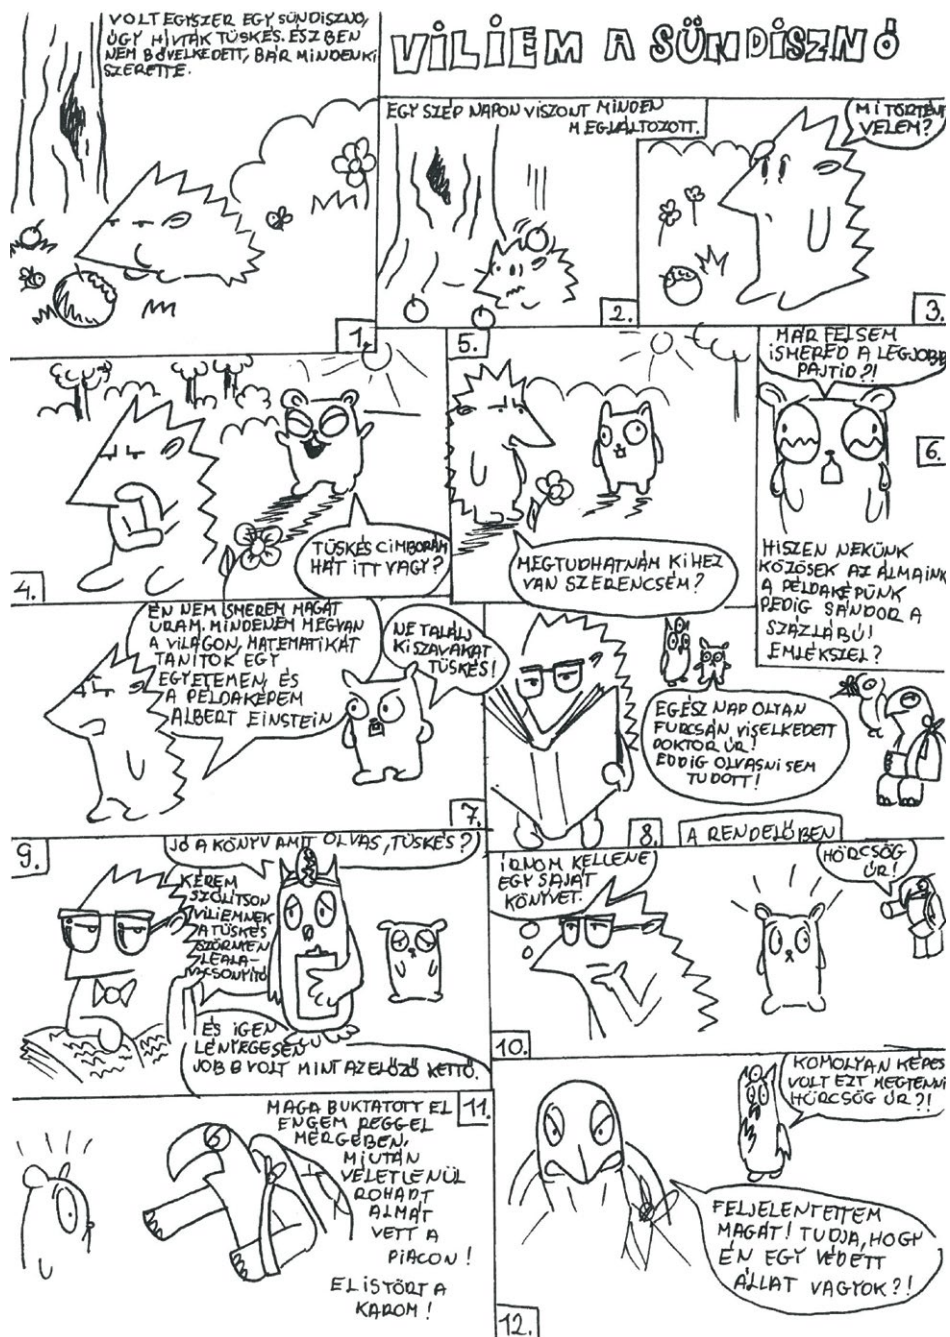 VILIEM A SÜNDISZNÓ
VOLT EGYSZER EGY SÜNDISZNÓ,
ÚGY HÍVTÁK TÜSKÉS. ÉSZBEN
NEM BŐVELKEDETT, BÁR MINDENKI
SZERETTE.
1.
EGY SZÉP NAPON VISZONT MINDEN
MEGVÁLTOZOTT.
2.
MI TÖRTÉNT
VELEM?
3.
TÜSKÉS CIMBORÁM
HÁT ITT VAGY?
4.
5.
MEGTUDHATNÁM KIHEZ
VAN SZERENCSÉM?
MÁR FELSEM
ISMERED A LEGJOBB
PAJTID?!
6.
HISZEN NEKÜNK
KÖZÖSEK AZ ÁLMAINK
A PÉLDAKÉPÜNK
PEDIG SÁNDOR A
SZÁZLÁBÚ!
EMLÉKSZEL?
ÉN NEM ISMEREM MAGÁT
URAM. MINDENEM MEGVAN
A VILÁGON, MATEMATIKÁT
TANÍTOK EGY
EGYETEMEN, ÉS
A PÉLDAKÉPEM
ALBERT EINSTEIN
NE TALÁLJ
KI SZAVAKAT
TÜSKÉS!
7.
EGÉSZ NAP OLYAN
FURCSÁN VISELKEDETT
DOKTOR ÚR!
EDDIG OLVASNI SEM
TUDOTT!
8.
A RENDELŐBEN
9.
JÓ A KÖNYV AMIT OLVAS, TÜSKÉS?
KÉREM
SZÓLÍTSON
VILIEMNEK
A TÜSKÉS
SZÖRNYEN
LEALA-
CSONYÍTÓ
ÉS IGEN
LÉNYEGESEN
JOBB VOLT MINT AZ ELŐZŐ KETTŐ.
ÍRNOM KELLENE
EGY SAJÁT
KÖNYVET.
HÖRCSÖG
ÚR!
10.
11.
MAGA BUKTATOTT EL
ENGEM REGGEL
MÉRGÉBEN,
MIUTÁN
VÉLETLENÜL
ROHADT
ALMÁT
VETT A
PIACON!
EL IS TÖRT A
KAROM!
KOMOLYAN KÉPES
VOLT EZT MEGTENNI
HÖRCSÖG ÚR?!
FELJELENTETTEM
MAGÁT! TUDJA, HOGY
ÉN EGY VÉDETT
ÁLLAT VAGYOK?!
12.